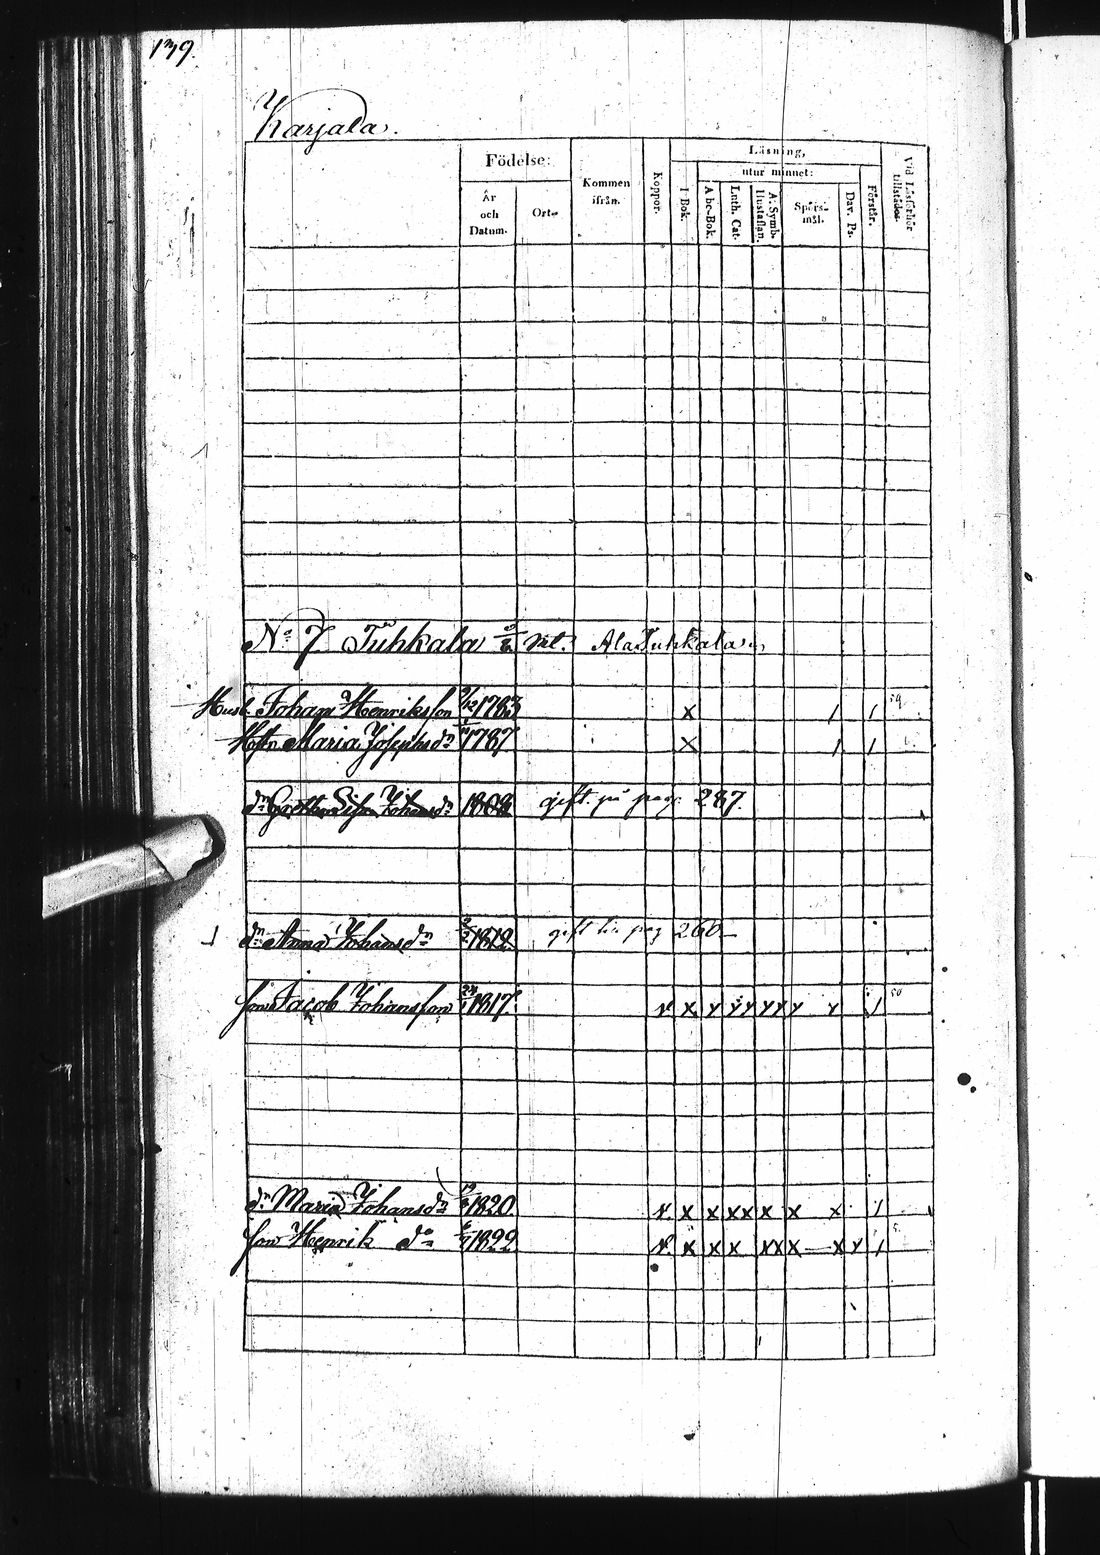 139.
Karjala.
Födelse:
År och Datum.
Ort.
Kommen ifrån.
Koppor.
Läsning,
I Bok.
utur minnet:
Abc-Bok.
Luth. Cat.
A. Symb. Hustaflan.
Spörs-mål.
Dav. Ps.
Förstår.
Vid Läsförhör tillstädes.
No 7 Tuhkala mt. Ala Tuhkala
Husb. Johan Henriksson 1783 x / /
Hustr. Maria Josephsdr 1787 x / /
dr Gretha Lisa Johansdr 1809 gift på pag. 287
dr Anna Johansdr 1812 gift pag 260
son Jacob Johansson 1817 v. x y y y y y y y /
dr Maria Johansdr 19 1820 v. x x x x x x x /
son Henrik do 1822 v. x x x x x x — x y /